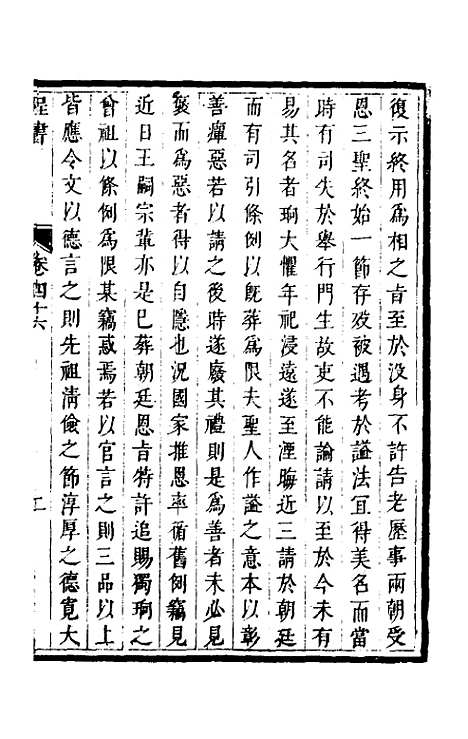 復示終用爲相之旨至於沒身不許告老歷事兩朝受
恩三聖終始一節存歿被遇考於謚法宜得美名而當
時有司失於舉行門生故吏不能論請以至於今未有
易其名者珣大懼年祀浸遠遂至湮晦近三請於朝廷
而有司引條例以旣葬爲限夫聖人作謚之意本以彰
善癉惡若以請之後時遂廢其禮則是爲善者未必見
襃而爲惡者得以自隱也況國家推恩率循舊例竊見
近日王嗣宗輩亦是已葬朝廷恩旨特許追賜獨珣之
曾祖以條例爲限某竊惑焉若以官言之則三品以上
皆應令文以德言之則先祖清儉之節淳厚之德寛大
程書
卷四十六